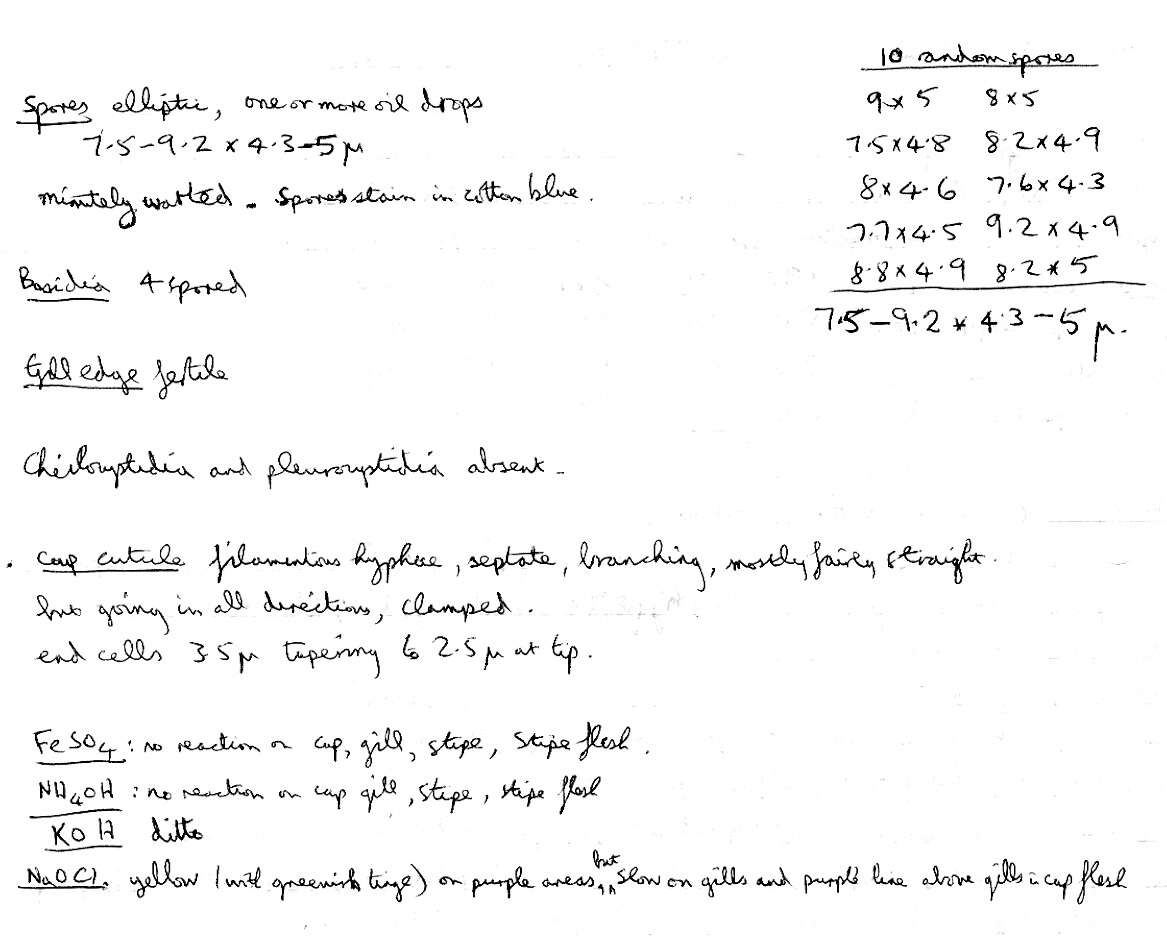 10 random spores
9 x 5 8 x 5
7.5 x 4.8 8.2 x 4.9
8 x 4.6 7.6 x 4.3
7.7 x 4.5 9.2 x 4.9
8.8 x 4.9 8.2 x 5
7.5 – 9.2 x 4.3 – 5 μ.
Spores elliptic, one or more oil drops
7.5 – 9.2 x 4.3 – 5 μ
minutely warted. Spores stain in cotton blue.
Basidia 4-spored
Gill edge fertile
Cheilocystidia and pleurocystidia absent –
. Cap cuticle filamentous hyphae, septate, branching, mostly fairly straight.
but going in all directions, clamped.
end cells 3.5 μ tapering to 2.5 μ at tip.
FeSO4 : no reaction on cap, gill, stipe, stipe flesh.
NH4OH : no reaction on cap gill, stipe, stipe flesh
KOH ditto
NaOCl. yellow (with greenish tinge) on purple areas, but slow on gills and purple line above gills in cap flesh